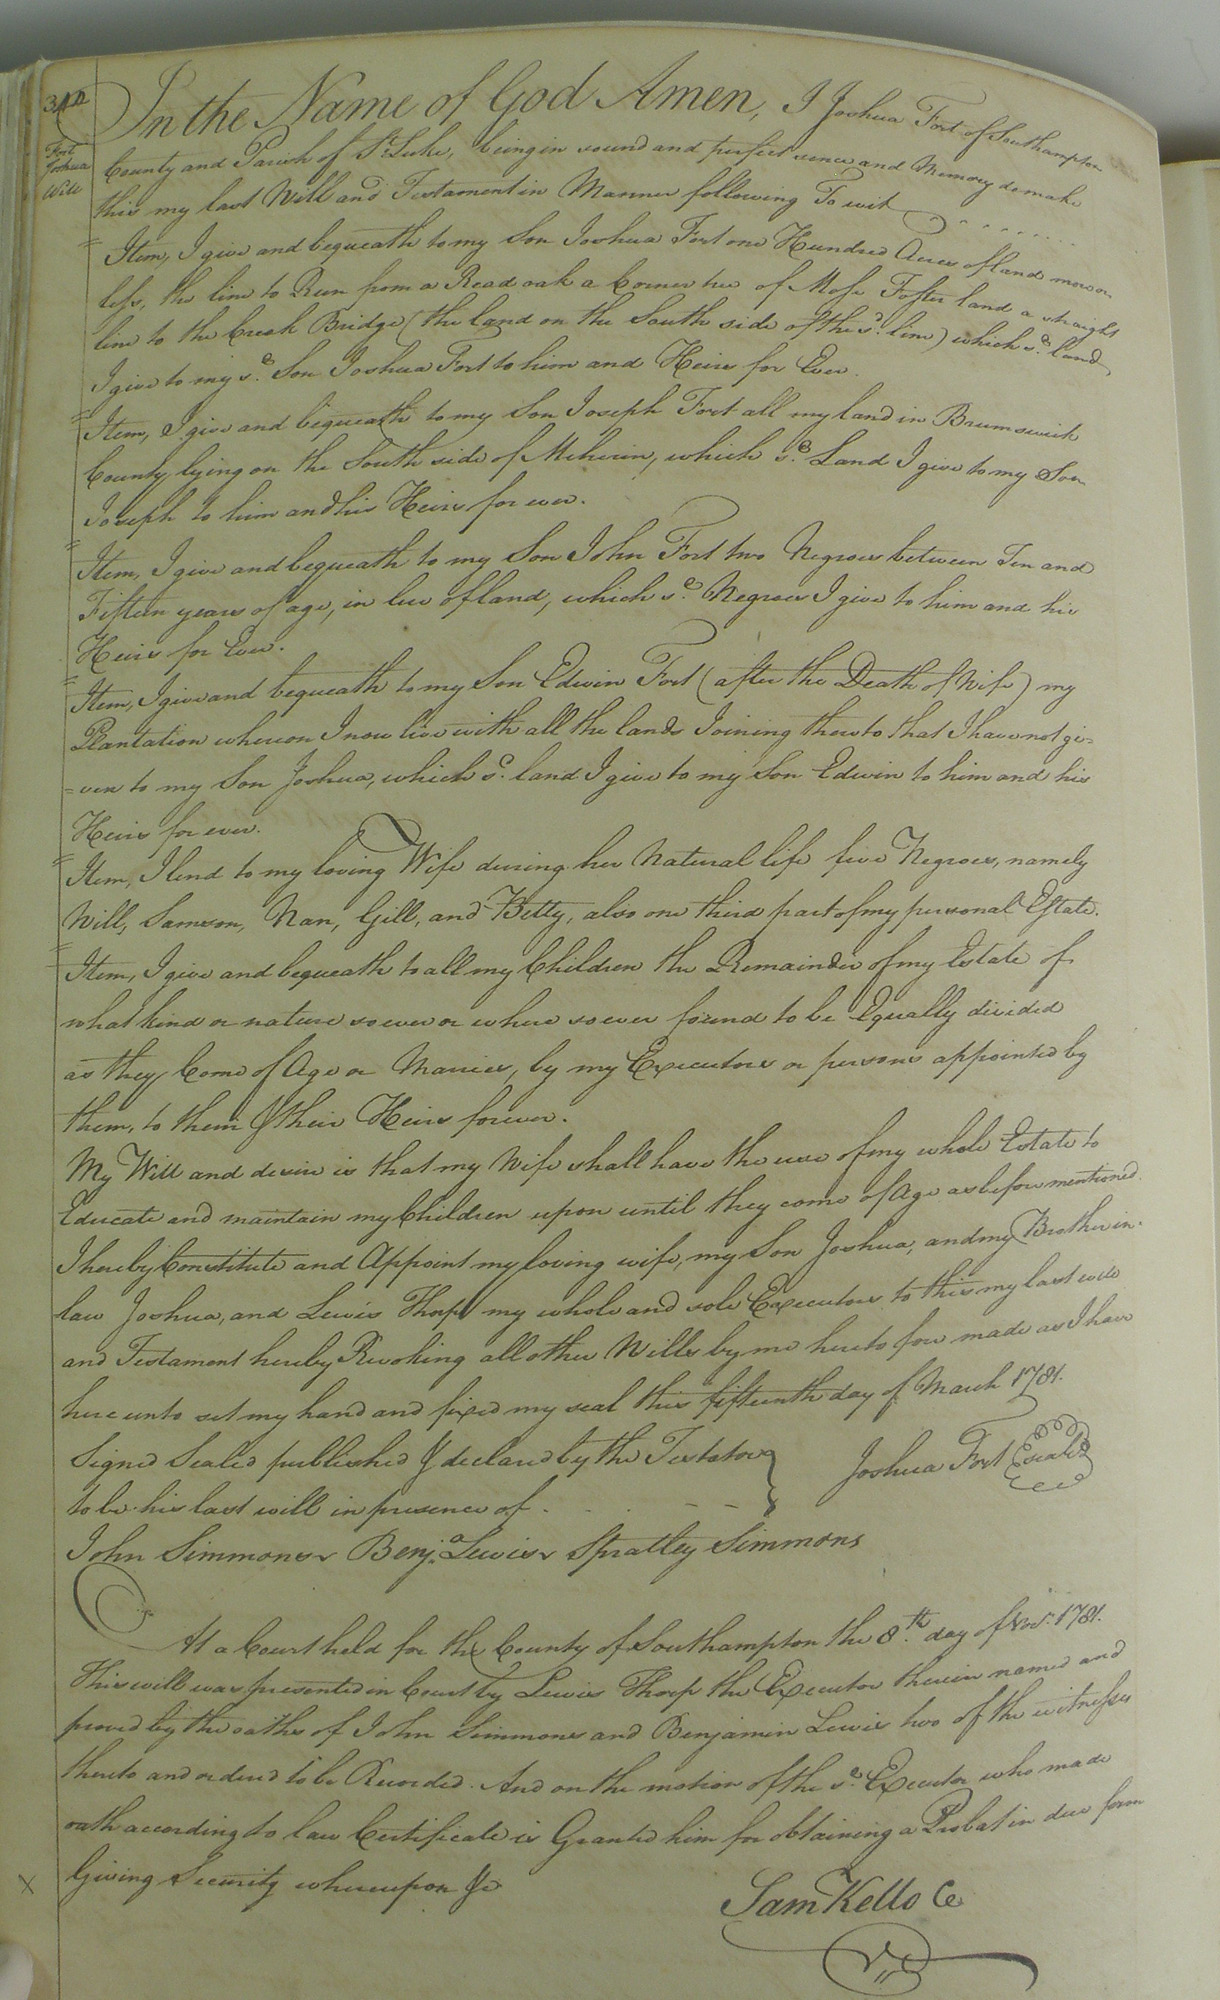 340
Fort
Joshua
Will
In the Name of God Amen, I Joshua Fort of Southampton
County and Parish of St. Luke, being in sound and perfect sence and Memory do make
this my last Will and Testament in Manner following To wit
Item, I give and bequeath to my Son Joshua Fort one Hundred Acres of land more or
less, the line to Run from a Read oak a Corner tree of Mose Foster land a straight
line to the Creek Bridge (the land on the South side of the sd. line) which sd. land
I give to my sd. Son Joshua Fort to him and Heirs for Ever.
Item, I give and bequeath to my Son Joseph Fort all my land in Brumswick
County lying on the South side of Meherin, which sd. Land I give to my Son
Joseph to him and his Heirs for ever.
Item, I give and bequeath to my Son John Fort two Negroes between Ten and
Fifteen years of age, in lue of land, which sd. Negroes I give to him and his
Heirs for Ever.
Item, I give and bequeath to my Son Edwin Fort (after the Death of Wife) my
Plantation whereon I now live with all the lands Joining thereto that I have not gi=
=ven to my Son Joshua, which sd. land I give to my Son Edwin to him and his
Heirs for ever.
Item, I lend to my loving Wife during her Natural life five Negroes, namely
Will, Samson, Nan, Gill, and Betty, also one third part of my personal Estate.
Item, I give and bequeath to all my Children the Remainder of my Estate of
what kind or nature soever or where soever found to be Equally divided
as they Come of Age or Marries, by my Executors or persons appointed by
them, to them & their Heirs forever.
My Will and desire is that my Wife shall have the use of my whole Estate to
Educate and maintain my Children upon until they come of Age as before mentioned.
I hereby Constitute and Appoint my loving wife, my Son Joshua, and my Brother in-
law Joshua, and Lewis Thorp my whole and sole Executors to this my last will
and Testament hereby Revoking all other Wills by me hereto fore made as I have
hereunto set my hand and fixed my seal this fifteenth day of March 1781.
Signed Sealed published & declared by the Testator
to be his last will in presence of
Joshua Fort (seal)
John Simmons Benja. Lewis Spratley Simmons
At a Court held for the County of Southampton the 8th. day of Novr. 1781.
This will was presented in Court by Lewis Thorp the Executor therein named and
proved by the oaths of John Simmons and Benjamin Lewis two of the witnesses
thereto and ordered to be Recorded. And on the motion of the sd. Executor who made
oath according to law Certificate is Granted him for obtaining a Probat in due form
Giving Security whereupon &c
x
Sam Kello Cc